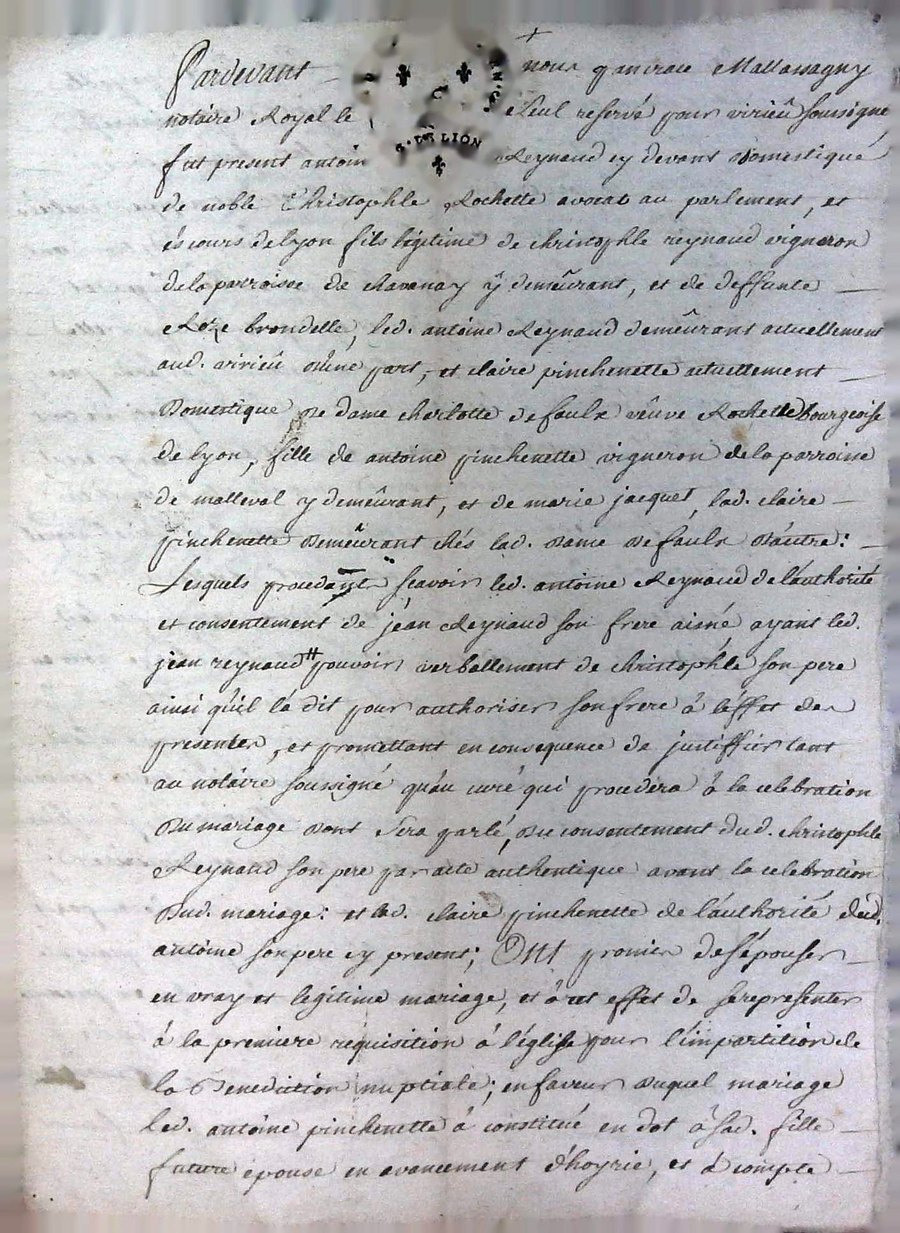 Pardevant nous Mallassagny
G. DE LION
notaire Royal le seul reservé pour virieû soussigné
fut present antoin Reynaud cy devant Domestique
de noble Christophle Rochette avocat au parlement, et
és cours de lyon fils légitime de christophle reynaud vigneron
de la parroisse de chavanay ÿ demeûrant, et de deffunte
brondelle, led. antoine Reynaud demeûrant actuellement
aud. virieû d'une part, et claire pinchenette actuellement
Domestique De dame charlotte defaulx veûve Rochette bourgeoise
de lyon, fille de antoine pinchenette vigneron de la parroisse
de malleval y demeûrant, et de marie jacquet, lad. claire
pinchenette Demeûrant chés lad. Dame Defaulx D'autre:
Lesquels procedant sçavoir led. antoine Reynaud de l'authorité
et consentement de jean Reynaud son frere aisné ayant led.
jean reynaud pouvoir verballement de christophle son pere
ainsi qu'il l'a dit pour authoriser son frere à l'éffet des
presentes, et promettant en consequence de justiffier tant
au notaire soussigné qu'au curé qui procedera à la celebration
Du mariage Dont sera parlé, Du consentement dud. christophle
Reynaud son pere par acte authentique avant la celebration
Dud. mariage: et lad. claire pinchenette de l'authorité dud.
antoine son pere cy present; Ont promis de s'épouser
en vray et legitime mariage, et à cet effet de se representer
à la premiere requisition à l'église pour l'impartition de
la Benediction nuptiale; en faveur Duquel mariage
led. antoine pinchenette à constitué en dot à sad. fille
future epouse en avancement d'hoyrie, et à compte